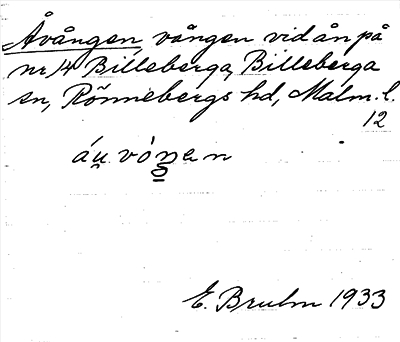 Åvången, vången vid ån på
nr 14 Billeberga, Billeberga
sn, Rönnebergs hd, Malm. l.
12
E. Bruhn 1933